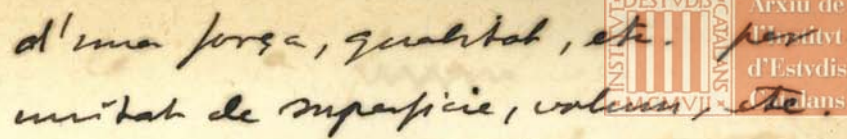 d'una força, qualitat, etc. per
unitat de superfície, volum, etc.
Arxiu de
l'Institvt
d'Estvdis
Catalans